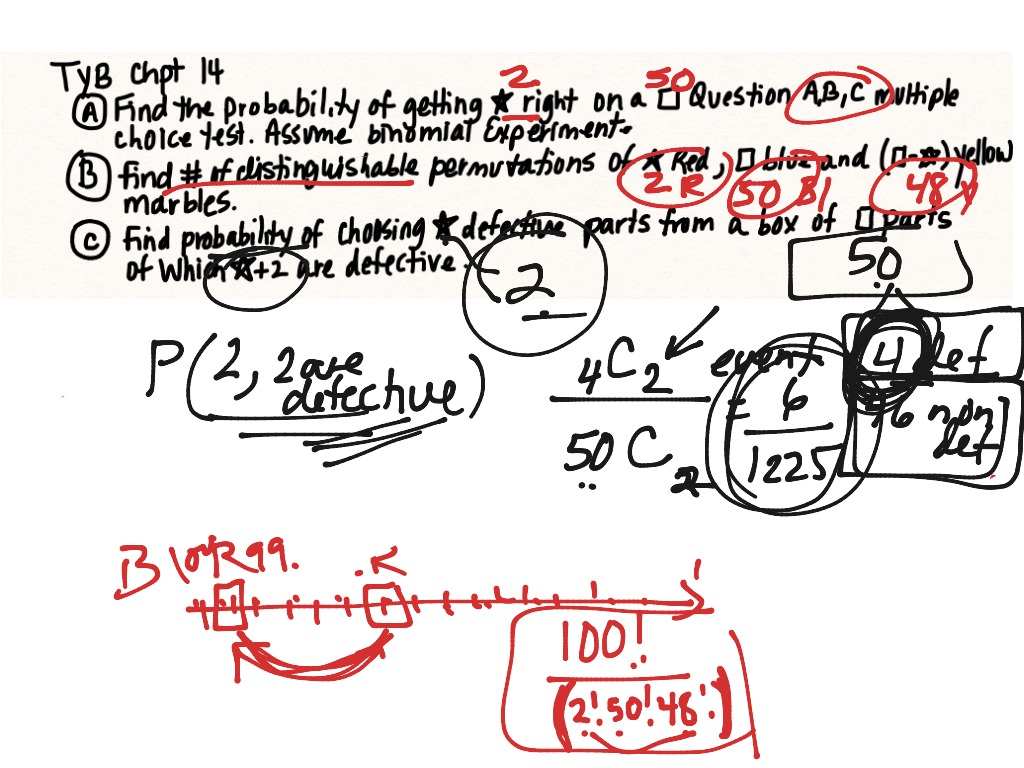 TyB Chpt 14
2 50
(A) Find the probability of getting ★ right on a □ Question A,B,C multiple
choice test. Assume binomial Experiment.
(B) Find # of distinguishable permutations of ★ Red, □ blue and (□-★) yellow
2 R 50 Bl 48 y
marbles.
(C) Find probability of choosing ★ defective parts from a box of □ parts
of which ★+2 are defective.
2
50
P(2, 2 are defective)
4C2 event
50C2
= 6
1225
4 def
46 non def
B
100!
(2! 50! 48!)